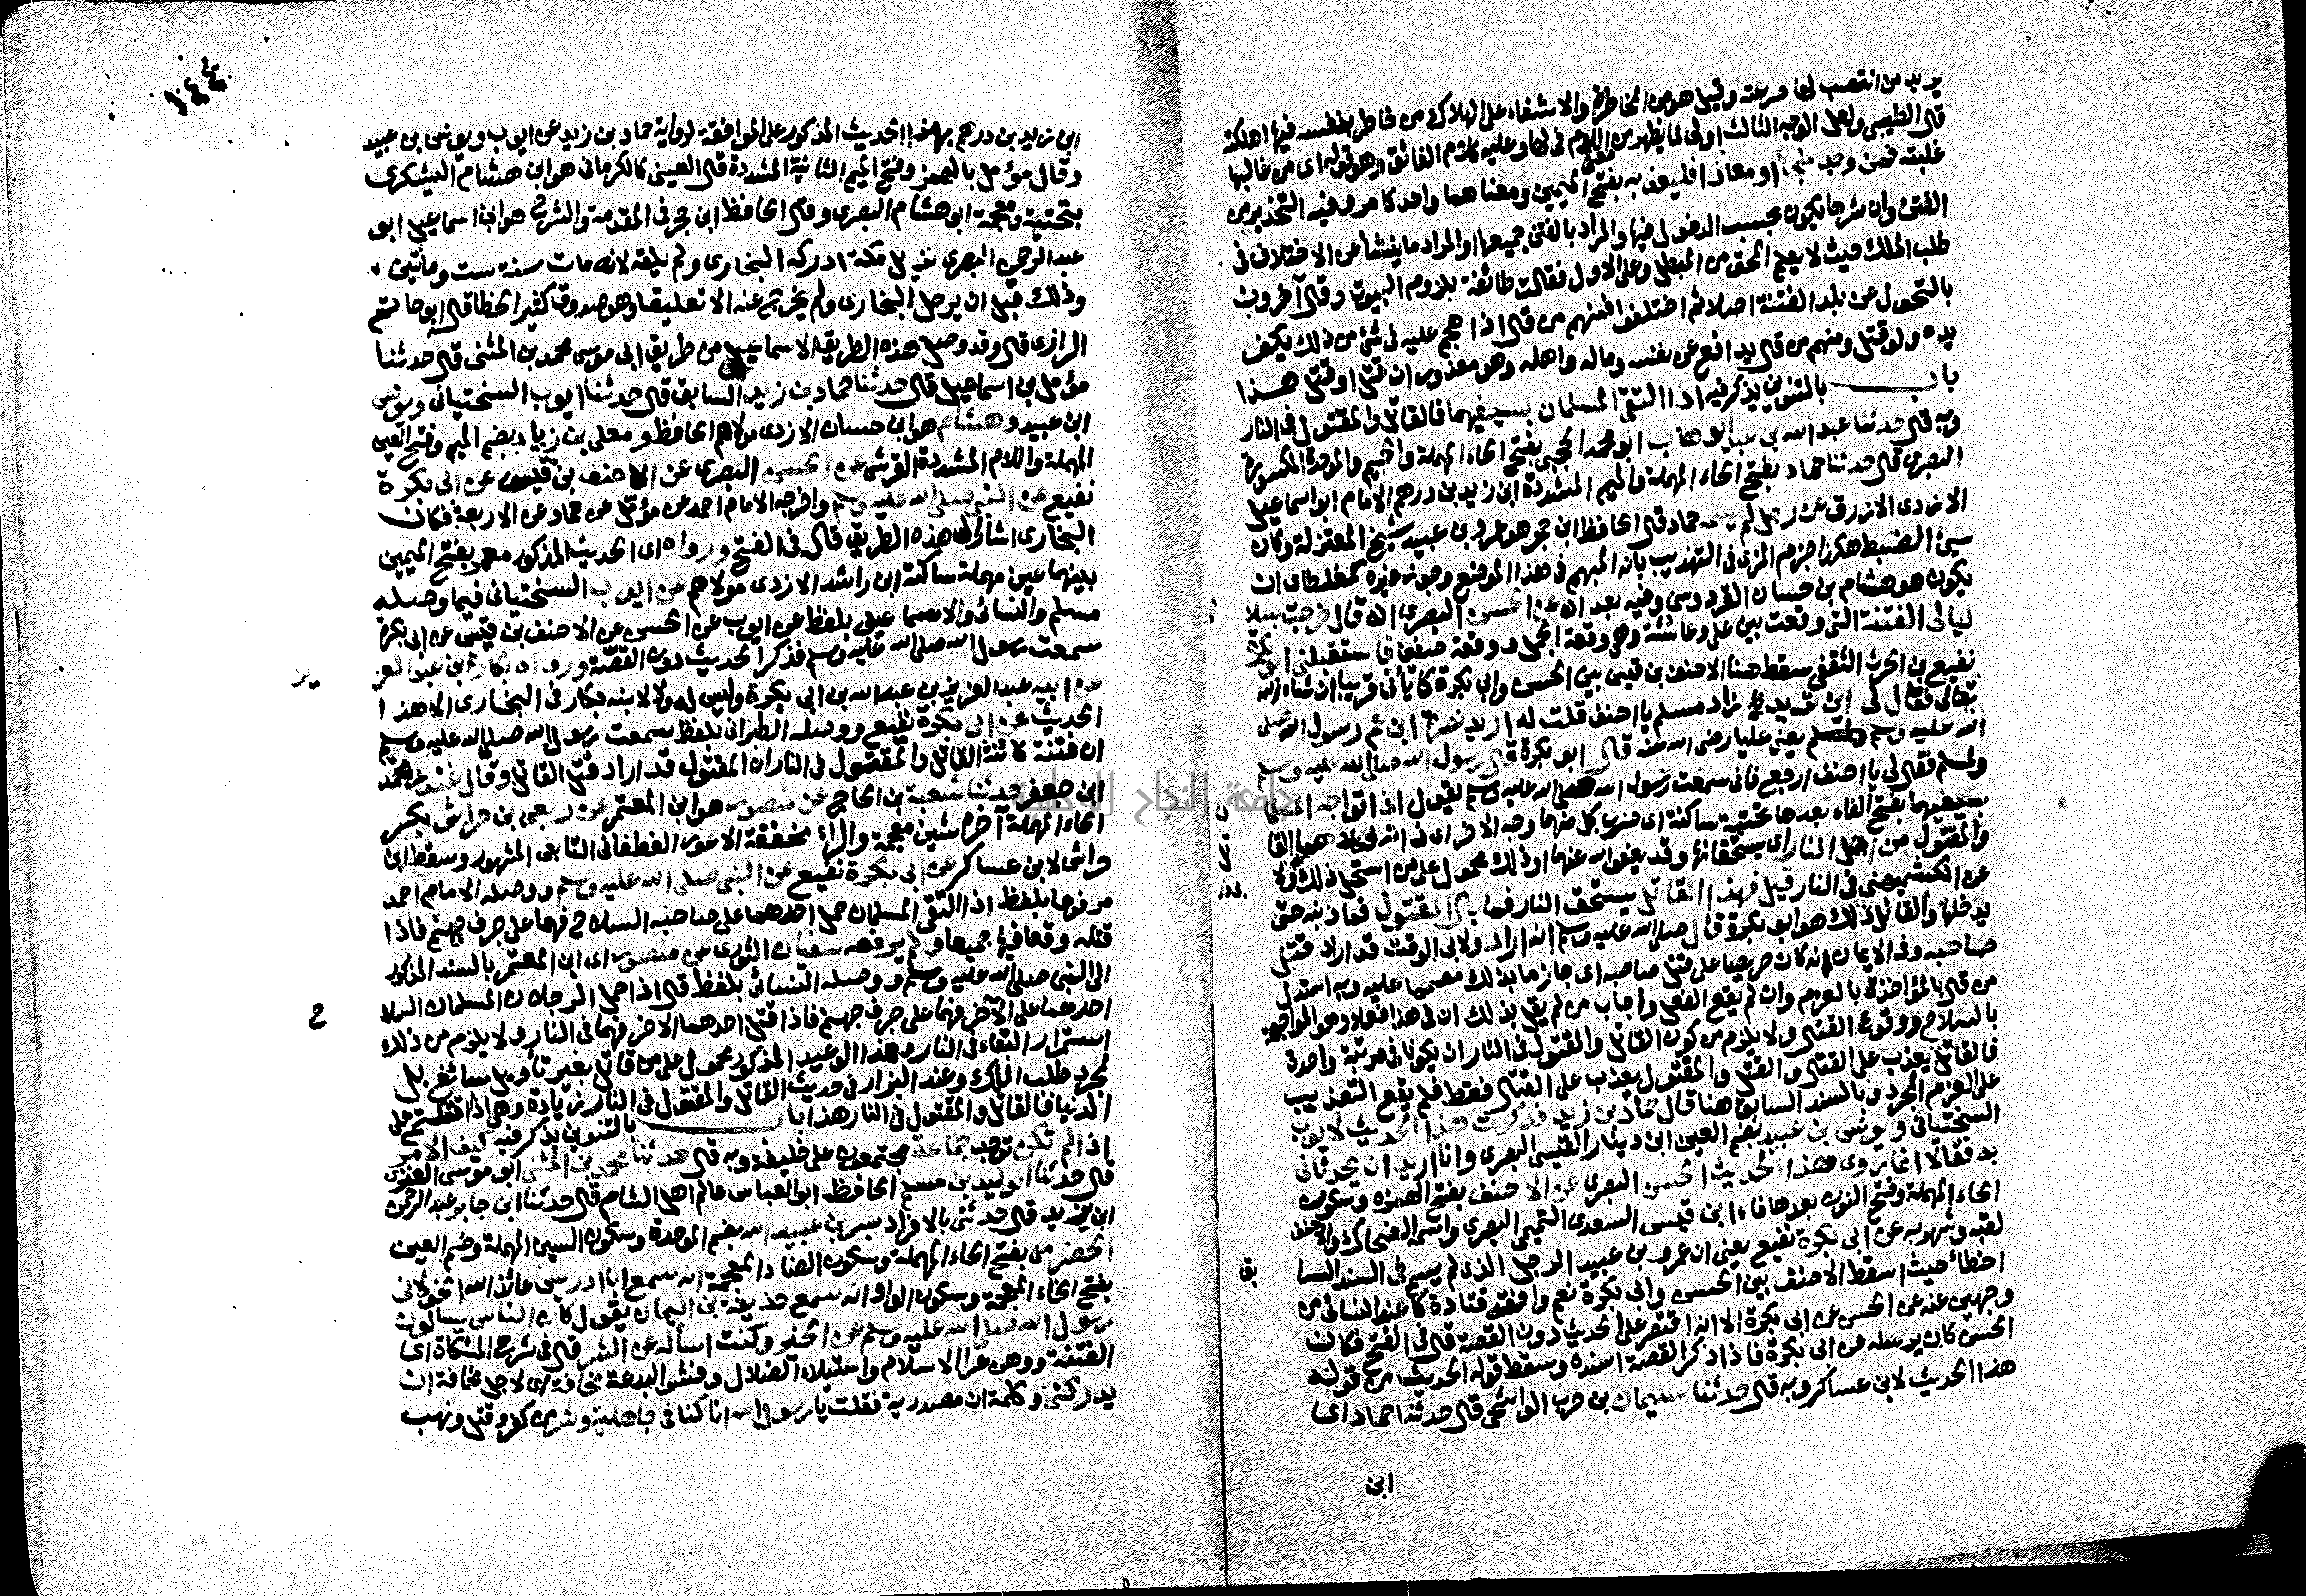 يريد من انتصب لها صرعته وقيل هو من المخاطرة والاشفاء على الهلاك اى من خاطر بنفسه فيها اهلكته
قال الطيبى ولعل الوجه الثالث اولى لما يظهر من اللام فى لها وعليه كلام الفائق وهو قوله اى من غالبها
غلبته فمن وجد ملجأ او معاذا فليعذ به بفتح الميمين ومعناهما واحد كما مر وفيه التحذير من
الفتن وان شرها يكون بحسب الدخول فيها والمراد بالفتن جميعها او المراد ما ينشأ عن الاختلاف فى
طلب الملك حيث لا يعلم المحق من المبطل وعلى الاول فقالت طائفة بلزوم البيوت وقال آخرون
بالتحول عن بلد الفتنة اصلا ثم اختلفوا فمنهم من قال اذا هجم عليه فى شئ من ذلك يكف
يده ولو قتل ومنهم من قال يدافع عن نفسه وماله واهله وهو معذور ان قتل او قتل هذا
باب بالتنوين يذكر فيه اذا التقى المسلمان بسيفيهما فالقاتل والمقتول فى النار
وبه قال حدثنا عبد الله بن عبد الوهاب ابو محمد الحجبى بفتح الحاء المهملة والجيم والموحدة المكسورة
البصرى قال حدثنا حماد بفتح الحاء المهملة والميم المشددة ابن زيد بن درهم الامام ابو اسماعيل
الازدى الازرق عن رجل لم يسمه حماد قال الحافظ ابن حجر هو عمرو بن عبيد شيخ المعتزلة وكان
سيئ الضبط هكذا جزم المزى فى التهذيب بانه المبهم فى هذا الموضع وجوز غيره كمغلطاى ان
يكون هو هشام بن حسان القردوسى وفيه بعد انه عن الحسن البصرى انه قال خرجت بسلا
ليالى الفتنة التى وقعت بين على وعائشة وهى وقعة الجمل ووقعة صفين فاستقبلنى ابو بكرة
نفيع بن الحرث الثقفى سقط هنا الاحنف بن قيس بين الحسن وابى بكرة كما يأتى قريبا ان شاء الله
تعالى فقال لى اين تريد زاد مسلم يا احنف قلت له اريد نصرة ابن عم رسول الله صلى
الله عليه وسلم يعنى عليا رضى الله عنه قال ابو بكرة قال رسول الله صلى الله عليه وسلم
ولمسلم فقال لى يا احنف ارجع فانى سمعت رسول الله صلى الله عليه وسلم يقول اذا تواجه المسلما
بسيفيهما بفتح الفاء بعدها تحتية ساكنة اى ضرب كل منهما وجه الاخر اى ذاته فكلاهما القا
والمقتول من اهل النار اى يستحقانها وقد يعفو الله عنهما او ذلك محمول على من استحل ذلك ولا
عن الكشميهنى فى النار قيل فهذا القاتل يستحق النار فما بال المقتول فما ذنبه حتى
يدخلها والقائل ذلك هو ابو بكرة قال صلى الله عليه وسلم انه اراد ولابى الوقت قد اراد قتل
صاحبه وفى الايمان انه كان حريصا على قتل صاحبه اى جازما بذلك مصمما عليه وبه استدل
من قال بالمؤاخذة بالعزم وان لم يقع الفعل واجاب من لم يقل بذلك ان فى هذا فعلا وهو المواجهة
بالسلاح ووقوع القتال ولا يلزم من كون القاتل والمقتول فى النار ان يكونا فى مرتبة واحدة
فالقاتل يعذب على القتال والقتل والمقتول يعذب على القتال فقط فلم يقع التعذيب
على العزم المجرد وبالسند السابق هنا قال حماد بن زيد فذكرت هذا الحديث لايوب
السختيانى ويونس بن عبيد بضم العين ابن دينار القيسى البصرى وانا اريد ان يحدثانى
به فقالا انما روى هذا الحديث الحسن البصرى عن الاحنف بفتح الهمزة وسكون
الحاء المهملة وفتح النون بعدها فاء ابن قيس السعدى التميمى البصرى واسمه الضحاك والاحنف
لقبه وشهر به عن ابى بكرة نفيع يعنى ان عمرو بن عبيد الرجل الذى لم يسم فى السند السا
اخطأ حيث اسقط الاحنف بين الحسن وابى بكرة نعم وافقه قتادة كما عند النسائى من
وجهين عنه عن الحسن عن ابى بكرة الا انه اقتصر على الحديث دون القصة قال فى الفتح فكان
الحسن كان يرسله عن ابى بكرة فاذا ذكر القصة اسنده وسقط قوله الحديث من قوله
هذا الحديث لابن عساكر وبه قال حدثنا سليمان بن حرب الواشحى قال حدثنا حماد اى
ابن
١٤٤
ابن زيد بن درهم بهذا الحديث المذكور على الموافقة لرواية حماد بن زيد عن ايوب ويونس بن عبيد
وقال مؤمل بالهمز وفتح الميم الثانية المشددة قال العينى كالكرمانى هو ابن هشام اليشكرى
بتحتية ومعجمة ابو هشام البصرى وقال الحافظ ابن حجر فى المقدمة والشرح هو ابن اسماعيل ابو
عبد الرحمن البصرى نزيل مكة ادركه البخارى ولم يلقه لانه مات سنة ست ومائتين
وذلك قبل ان يرحل البخارى ولم يخرج عنه الا تعليقا وهو صدوق كثير الخطا قاله ابو حاتم
الرازى قال وقد وصل هذه الطريق الاسماعيلى من طريق ابى موسى محمد بن المثنى قال حدثنا
مؤمل بن اسماعيل قال حدثنا حماد بن زيد السابق قال حدثنا ايوب السختيانى ويونس
ابن عبيد وهشام هو ابن حسان الازدى مولاهم الحافظ ومعلى بن زياد بضم الميم وفتح العين
المهملة واللام المشددة القرشى عن الحسن البصرى عن الاحنف بن قيس عن ابى بكرة
نفيع عن النبى صلى الله عليه وسلم واخرجه الامام احمد عن مؤمل عن حماد عن الاربعة فكان
البخارى اشار الى هذه الطريق قاله فى الفتح ورواه اى الحديث المذكور معمر بفتح الميمين
بينهما عين مهملة ساكنة ابن راشد الازدى مولاهم عن ايوب السختيانى فيما وصله
مسلم والنسائى والاسماعيلى بلفظ عن ايوب عن الحسن عن الاحنف بن قيس عن ابى بكرة
سمعت رسول الله صلى الله عليه وسلم فذكر الحديث دون القصة ورواه بكار ابن عبد العز
عن ابيه عبد العزيز بن عبد الله بن ابى بكرة وليس له ولا لابنه بكار فى البخارى الا هذا
الحديث عن ابى بكرة نفيع ووصله الطبرانى بلفظ سمعت رسول الله صلى الله عليه وسلم
ان فتنة كائنة القاتل والمقتول فى النار ان المقتول قد اراد قتل القاتل وقال غندر محمد
ابن جعفر حدثنا شعبة بن الحاج عن منصور هو ابن المعتمر عن ربعى بن حراش بكسر
الحاء المهملة آخره شين معجمة والراء مخففة الاعور الغطفانى التابعى المشهور وسقط ابن
حراش لابن عساكر عن ابى بكرة نفيع عن النبى صلى الله عليه وسلم ووصله الامام احمد
مرفوعا بلفظ اذا التقى المسلمان حمل احدهما على صاحبه السلاح فهما على جرف جهنم فاذا
قتله وقعا فيها جميعا ولم يرفعه سفيان الثورى عن منصور اى ابن المعتمر بالسند المذكور
الى النبى صلى الله عليه وسلم ووصله النسائى بلفظ قال اذا حمل الرجلان المسلمان السلا
احدهما على الآخر فهما على جرف جهنم فاذا قتل احدهما الاخر فهما فى النار ولا يلزم من ذلك
استمرار البقاء فى النار وهذا الوعيد المذكور محمول على من قاتل بغير تأويل سائغ بل
لمجرد طلب الملك وعند البزار فى حديث القاتل والمقتول فى النار زيادة وهى اذا اقتتلتم على
الدنيا فالقاتل والمقتول فى النار هذا باب بالتنوين يذكر فيه كيف الامر
اذا لم تكن توجد جماعة مجتمعون على خليفة وبه قال حدثنا محمد بن المثنى ابو موسى العنزى
قال حدثنا الوليد بن مسلم الحافظ ابو العباس عالم اهل الشام قال حدثنا ابن جابر عبد الرحمن
ابن يزيد قال حدثنى بالافراد بسر بن عبيد الله بضم الموحدة وسكون السين المهملة وضم العين
الحضرمى بفتح الحاء المهملة وسكون الضاد المعجمة انه سمع ابا ادريس عائذ الله الخولانى
بفتح الخاء المعجمة وسكون الواو انه سمع حذيفة بن اليمان يقول كان الناس يسألون
رسول الله صلى الله عليه وسلم عن الخير وكنت اسأله عن الشر قال فى شرح المشكاة اى
الفتنة ووهن عرا الاسلام واستيلاء الضلال وفشو البدعة مخافة اى لاجل مخافة ان
يدركنى وكلمة ان مصدرية فقلت يا رسول الله انا كنا فى جاهلية وشر من كفر وقتل ونهب